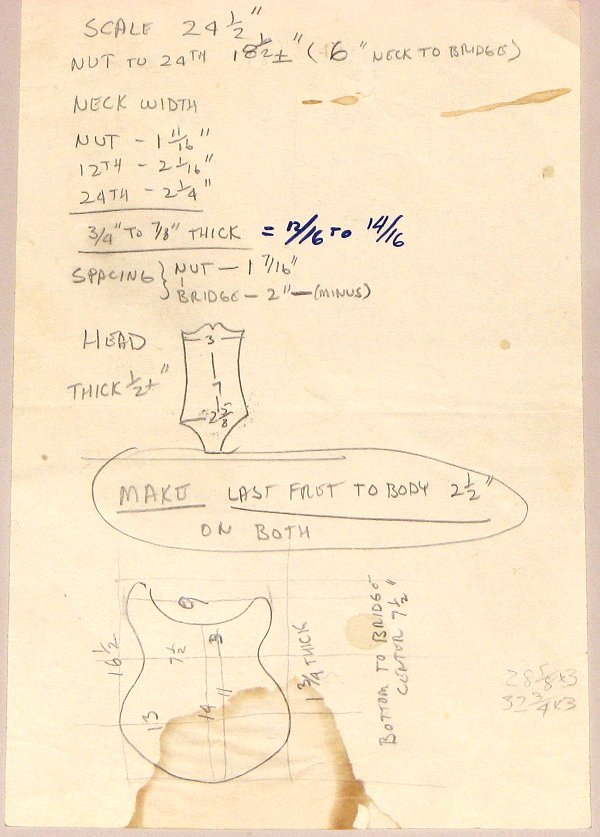 SCALE 24 1/2"
NUT TO 24TH 18 1/2 ±" (6" NECK TO BRIDGE)
NECK WIDTH
NUT - 1 11/16"
12TH - 2 1/16"
24TH - 2 1/4"
3/4" TO 7/8" THICK = 12/16 TO 14/16
SPACING } NUT - 1 7/16"
BRIDGE - 2" - (MINUS)
HEAD
THICK 1/2 ±"
3
7
2 5/8
MAKE LAST FRET TO BODY 2 1/2"
ON BOTH
9
16 1/2
7 1/2
3
13
14
11
1 3/4 THICK
BOTTOM TO BRIDGE
CENTER 7 1/2"
28 5/8 x 3
32 3/4 x 3